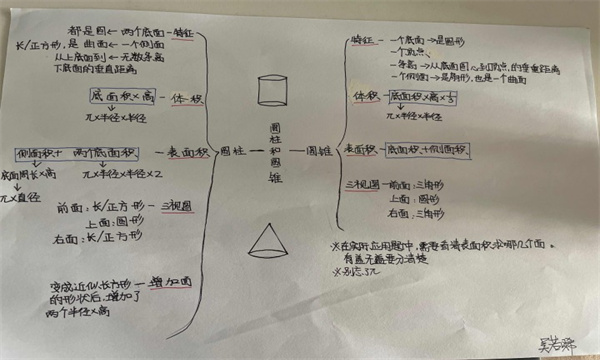 都是圆←两个底面-特征
长/正方形,是曲面←一个侧面
从上底面到←无数条高
下底面的垂直距离
底面积×高-体积
π×半径×半径
侧面积+两个底面积-表面积
底面周长×高
π×半径×半径×2
π×直径
前面:长/正方形-三视图
上面:圆形
右面:长/正方形
变成近似长方形-增加面
的形状后,增加了
两个半径×高
圆柱
圆柱和圆锥
圆锥
特征-一个底面→是圆形
一个顶点
一条高→从底面圆心到顶点的垂直距离
一个侧面→是扇形,也是一个曲面
体积-底面积×高×1/3
π×半径×半径
表面积-底面积+侧面积
三视图-前面:三角形
上面:圆形
右面:三角形
※在实际应用题中,需要看清表面积求哪几个面。
有盖无盖要分清楚
※别忘了π
吴若